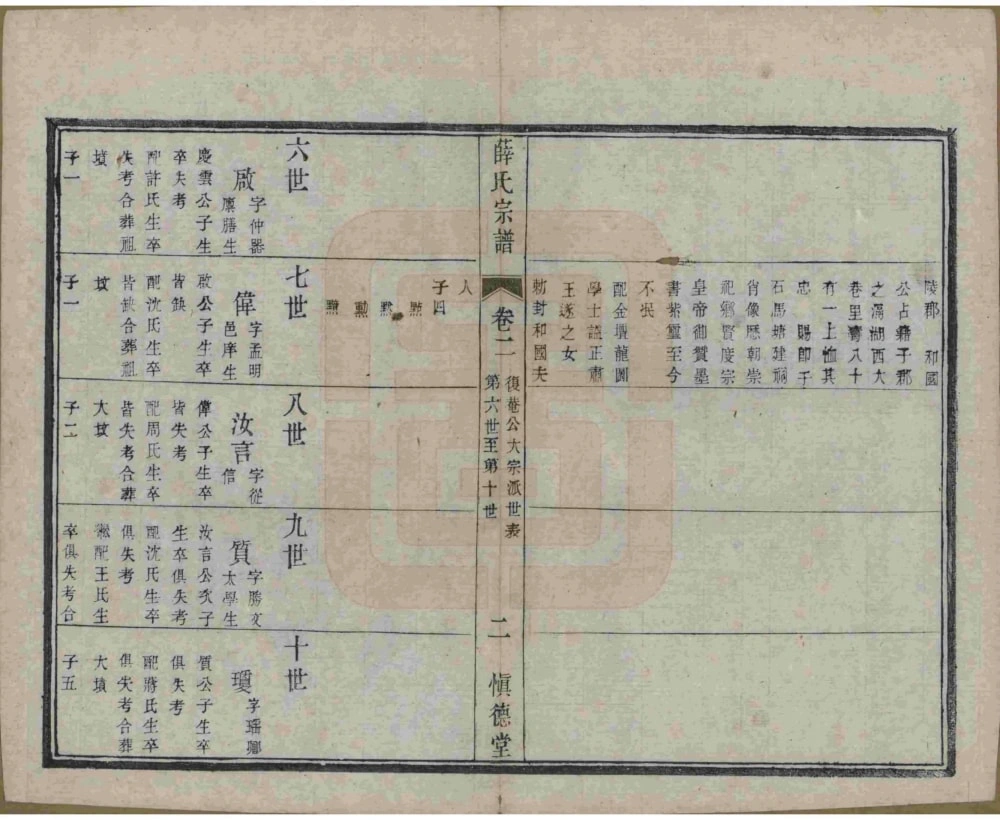 陵郡 和國
公占籍于郡
之滆湖西大
巷里壽八十
有一上恤其
忠 賜卽于
石馬塘建祠
肖像歷朝崇
祀鄉賢度宗
皇帝御贊墨
書紫璽至今
不泯
配金壇龍圖
學士諡正肅
王遂之女
勅封和國夫
薛氏宗譜
卷二
復菴公大宗派世表
第六世至第十世
二
慎德堂
人
子四
點
默
勳
黑
六世
啟
字仲器
廩膳生
慶雲公子生
卒失考
配許氏生卒
失考合葬祖
墳
子一
七世
偉
字孟明
邑庠生
啟公子生卒
皆缺
配沈氏生卒
皆缺合葬祖
墳
子一
八世
汝言
字從
信
偉公子生卒
皆失考
配周氏生卒
皆失考合葬
大墳
子二
九世
質
字勝文
太學生
汝言公次子
生卒俱失考
配沈氏生卒
俱失考
繼配王氏生
卒俱失考合
十世
瓊
字瑤卿
質公子生卒
俱失考
配蔣氏生卒
俱失考合葬
大墳
子五